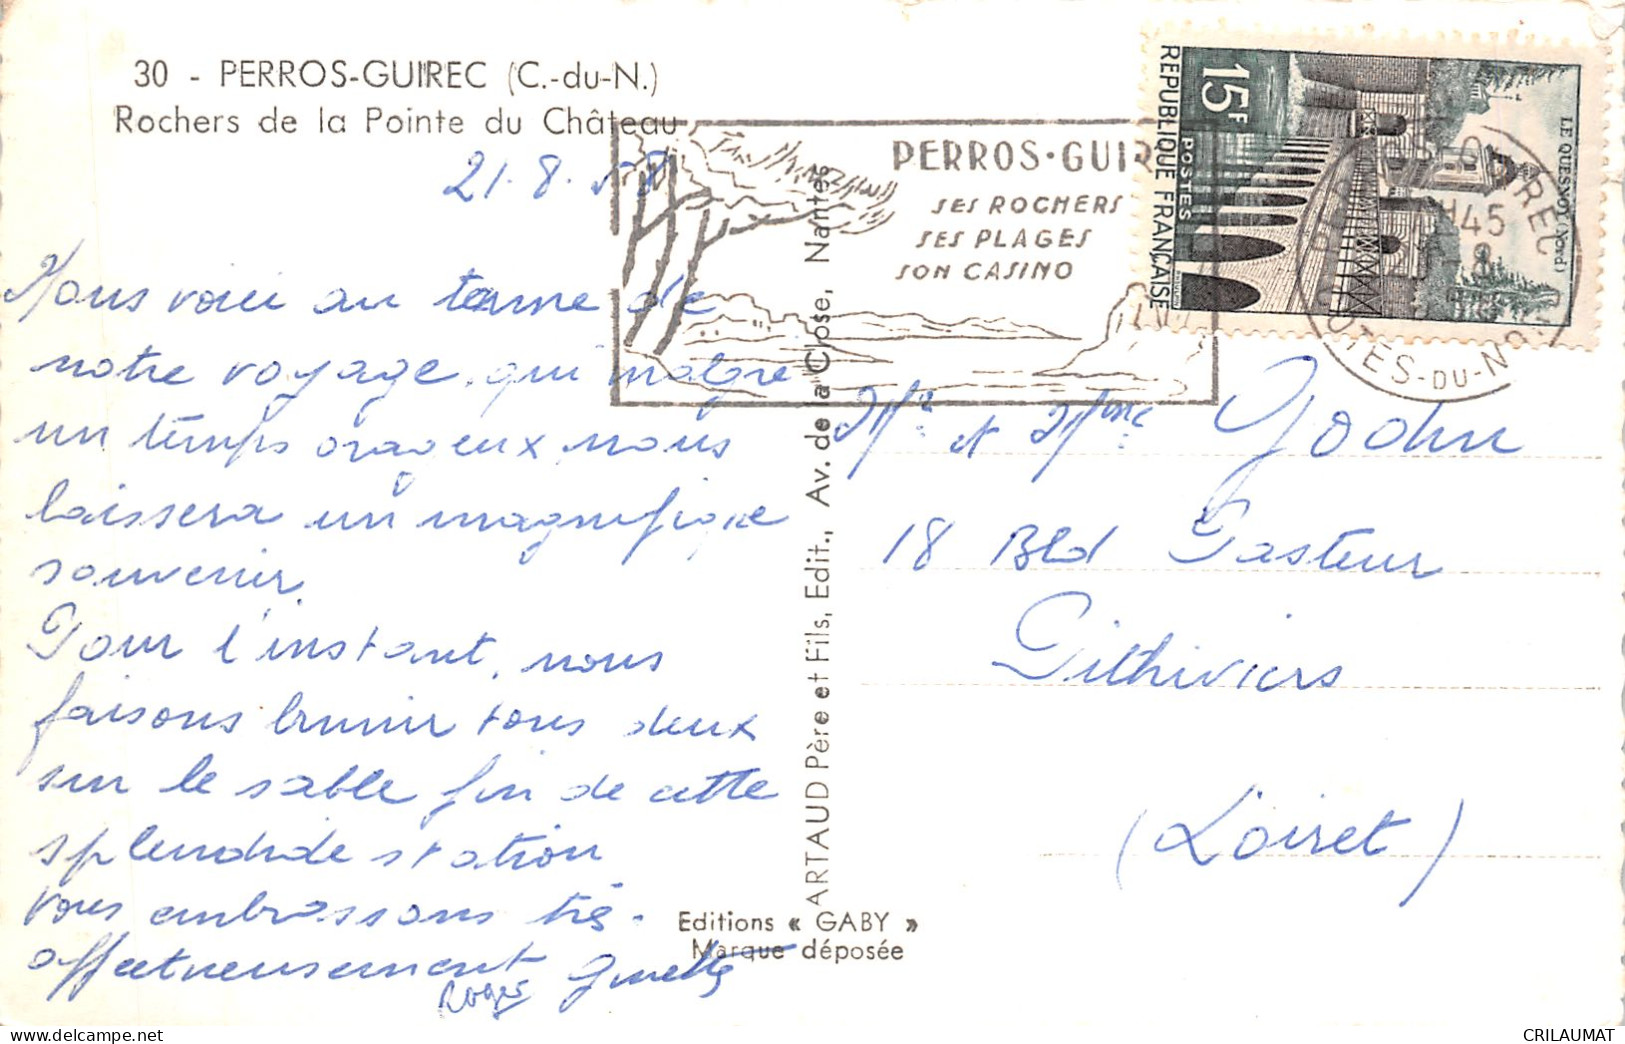 30 - PERROS-GUIREC (C.-du-N.)
Rochers de la Pointe du Château
21.8.58
Nous voici au terme de
notre voyage, qui malgré
un temps orageux, nous
laissera un magnifique
souvenir.
Pour l'instant, nous
faisons brunir tous deux
sur le sable fin de cette
splendide station
Vous embrassons très
affectueusement
Roger Ginette
PERROS-GUIR
SES ROCHERS
SES PLAGES
SON CASINO
15F
POSTES
REPUBLIQUE FRANÇAISE
LE QUESNOY (Nord)
COTES-DU-NORD
ARTAUD Père et Fils, Edit., Av. de la Close, Nantes
Editions « GABY »
Marque déposée
Mr et Mme
18 Bld Pasteur
Pithiviers
(Loiret)
CRILAUMAT